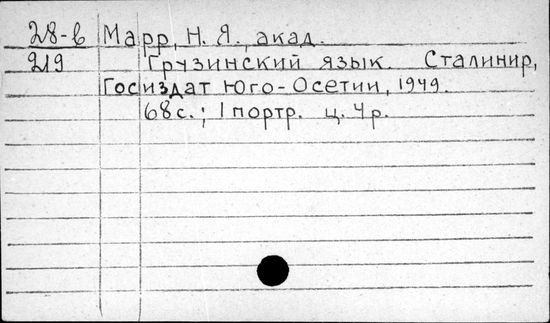 28-в Марр, Н. Я., акад.
219 Грузинский язык. Сталинир,
Госиздат Юго-Осетии, 1949.
68с.; 1 портр. ц. 4р.